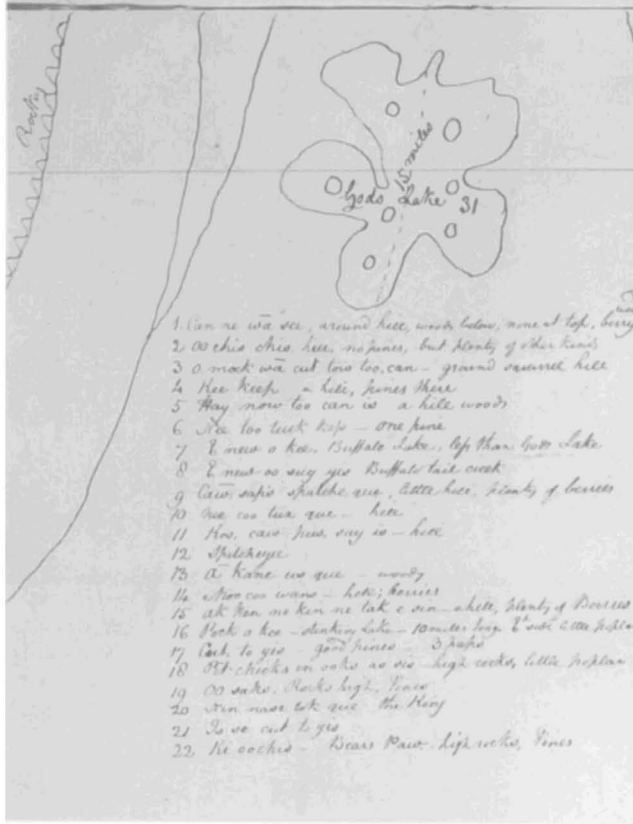 Rocky
15 miles
Gods Lake 31
1 Can ne wā see, around hill, woods below, none at top, berry
2 OO chis chis hill, no pines, but plenty of other kinds
3 O mock wā cut tows too, can – ground squirrel hill
4 Kee keep a hill, pines there
5 Hay now too can is a hill woods
6 Nee too tuck kis – one pine
7 E new o kee, Buffalo Lake, less than Gods Lake
8 E new os suy yis Buffalo tail creek
9 Caw sapis spatche que, little hill, plenty of berries
10 Nee coo tux que – hill
11 Kos, caw pis, suy is – hill
12 Spitcheyee
13 ā Kame us que – woody
14 Moo coo wans – hill; berries
15 ak kin ne kin ne tak e sin – a hill, plenty of Berries
16 Pock o kee – stinking Lake – 10 miles long E side little poplar
17 Cut to yis – good pines – 3 paps
18 chicks in ooks as sis – high rocks, little poplar
19 OO saks. Rocks high, Pines
20 nase tok que the King
21 cut to yis
22 Ki oochis – Bears Paw. high rocks, Pines